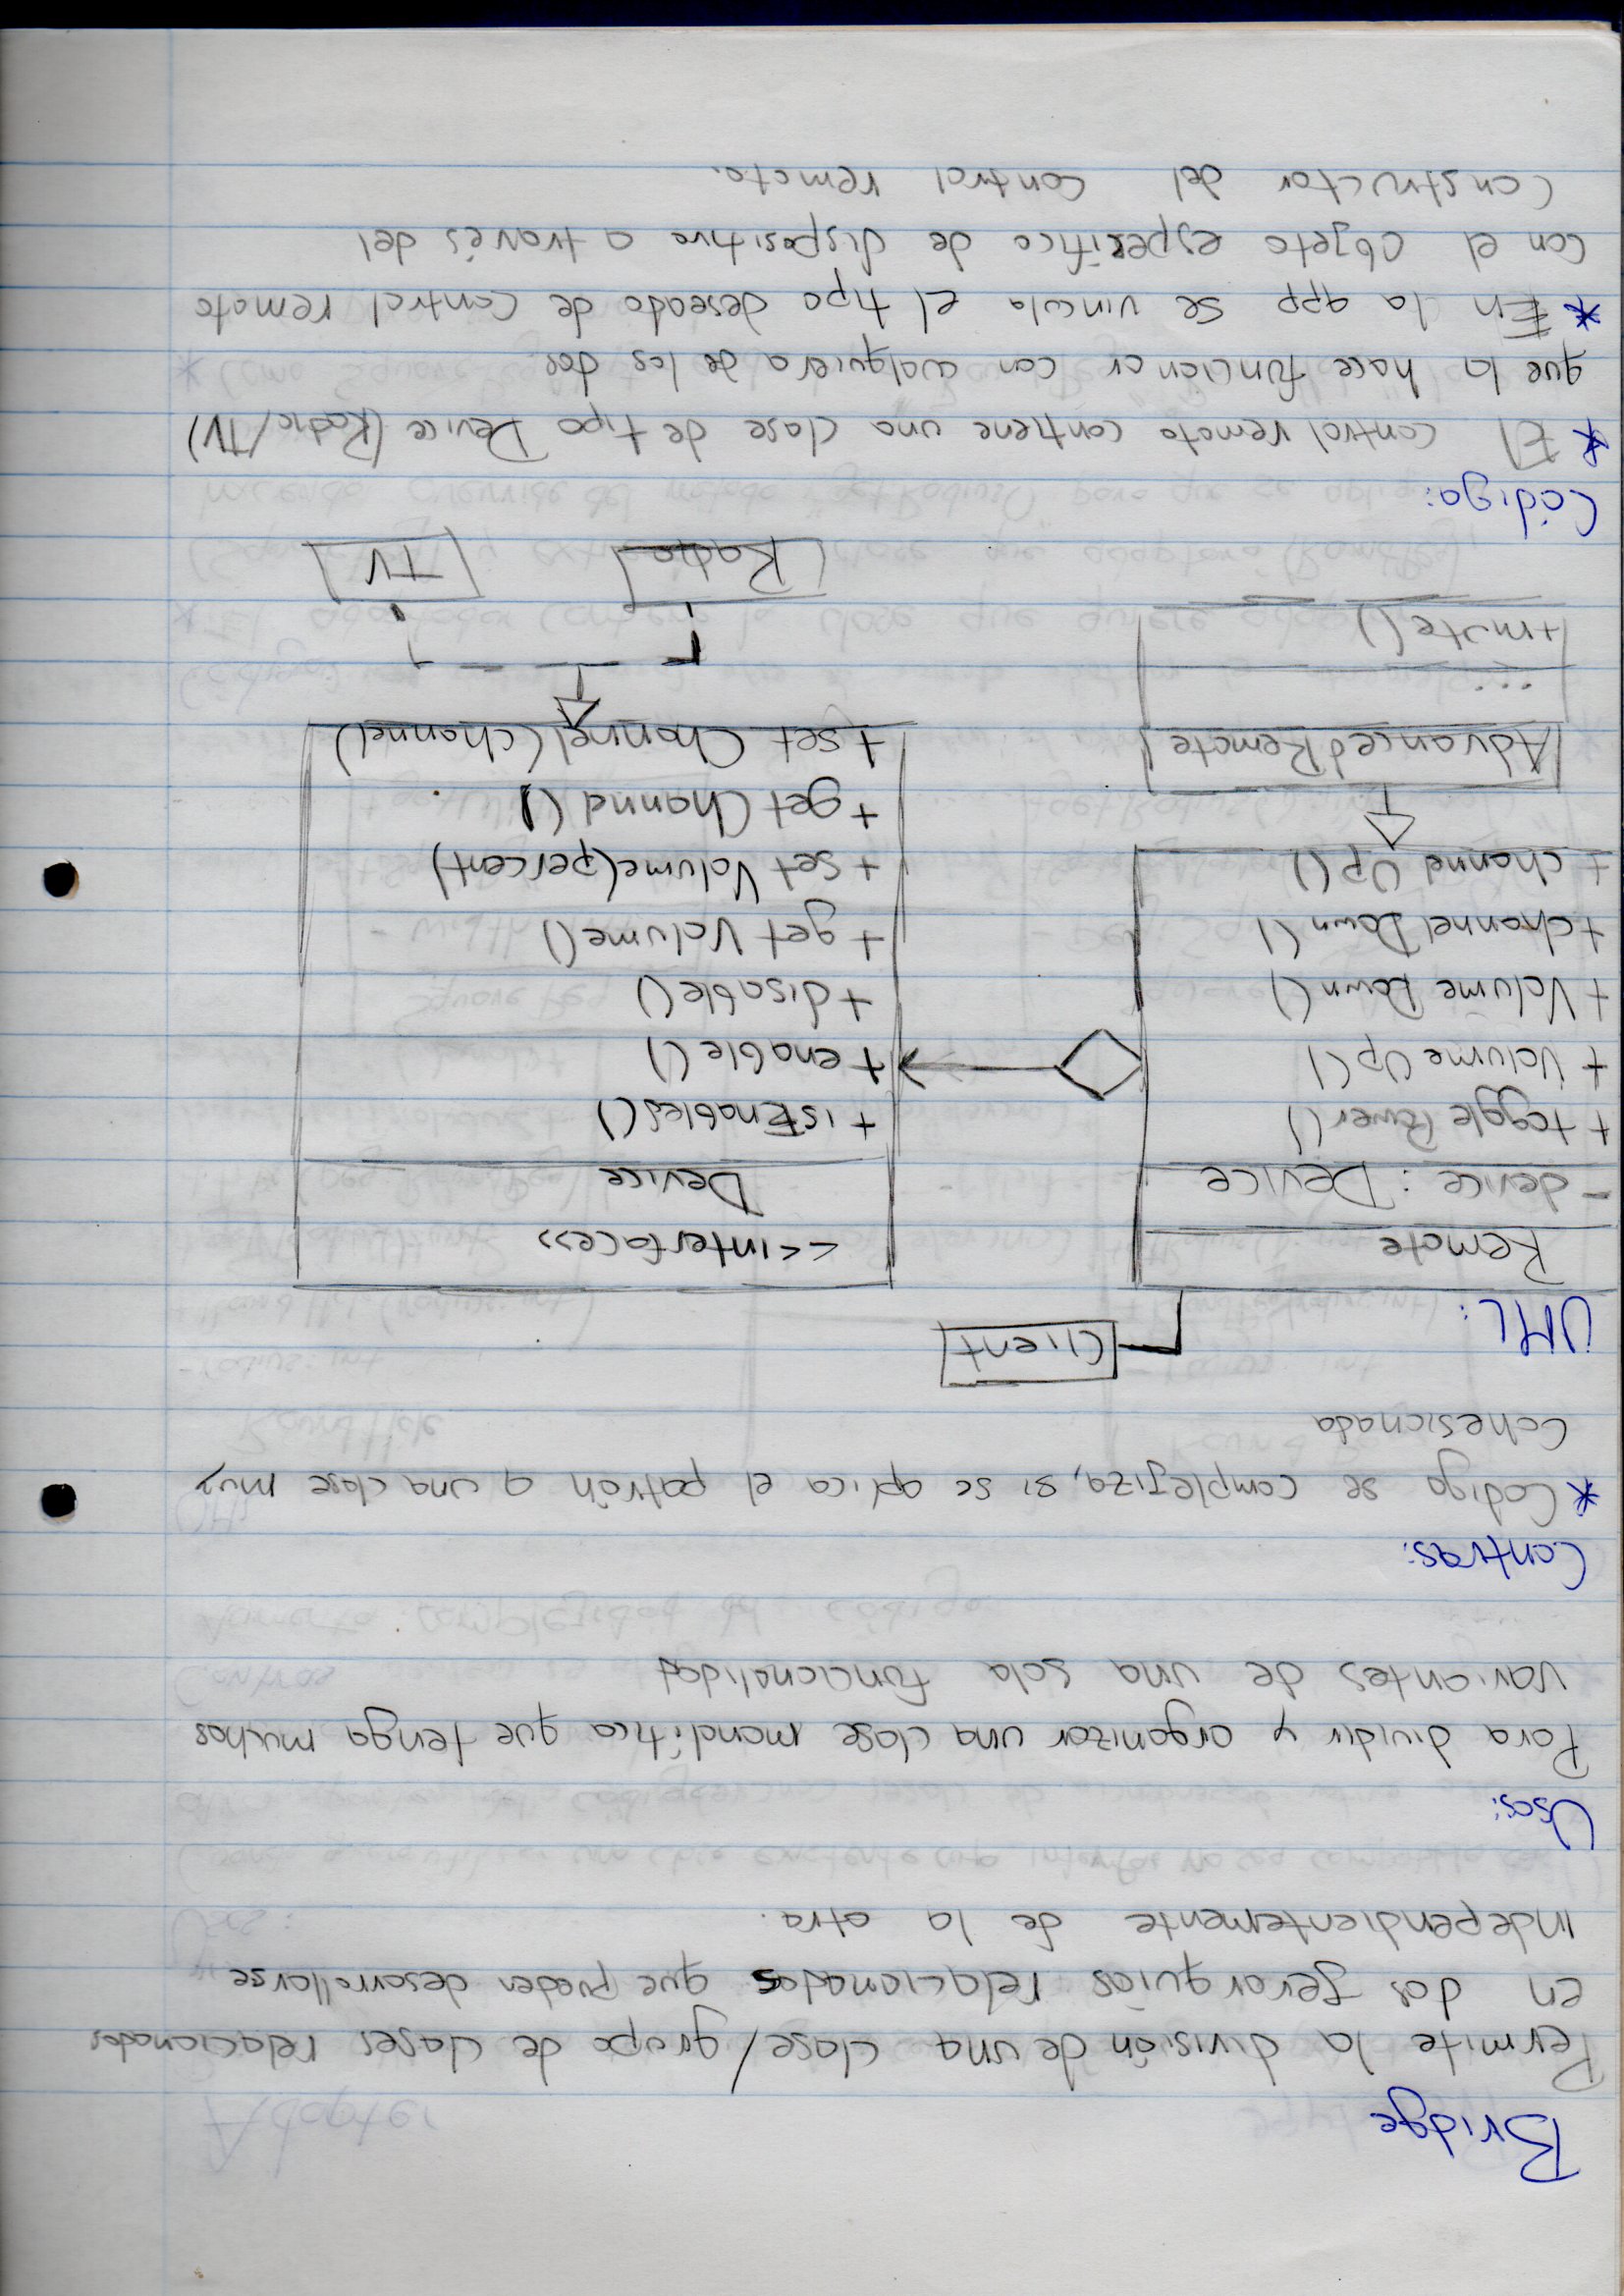 Bridge
Permite la división de una clase/grupo de clases relacionados
en dos gerarquías relacionadas que pueden desarrollarse
independientemente de la otra.
Usos:
Para dividir y organizar una clase monolítica que tenga muchas
variantes de una sola funcionalidad
Contras:
* Codigo se complegiza, si se aplica el patrón a una clase muy
cohesionada
UML:
Client
Remote
- device : Device
+ toggle Power()
+ Volume Up()
+ Volume Down()
+ channel Down()
+ channel Up()
<<interface>>
Device
+ isEnables()
+ enable()
+ disable()
+ get Volume()
+ set Volume(percent)
+ get Channel()
+ set Channel(channel)
AdvancedRemote
...
+mute()
Radio
TV
Código:
* El control remoto contiene una clase de tipo Device (Radio/TV)
que la hace funcionar con cualquiera de los dos
* En la app se vincula el tipo deseado de control remoto
con el objeto espesífico de dispositivo a través del
constructor del control remoto.